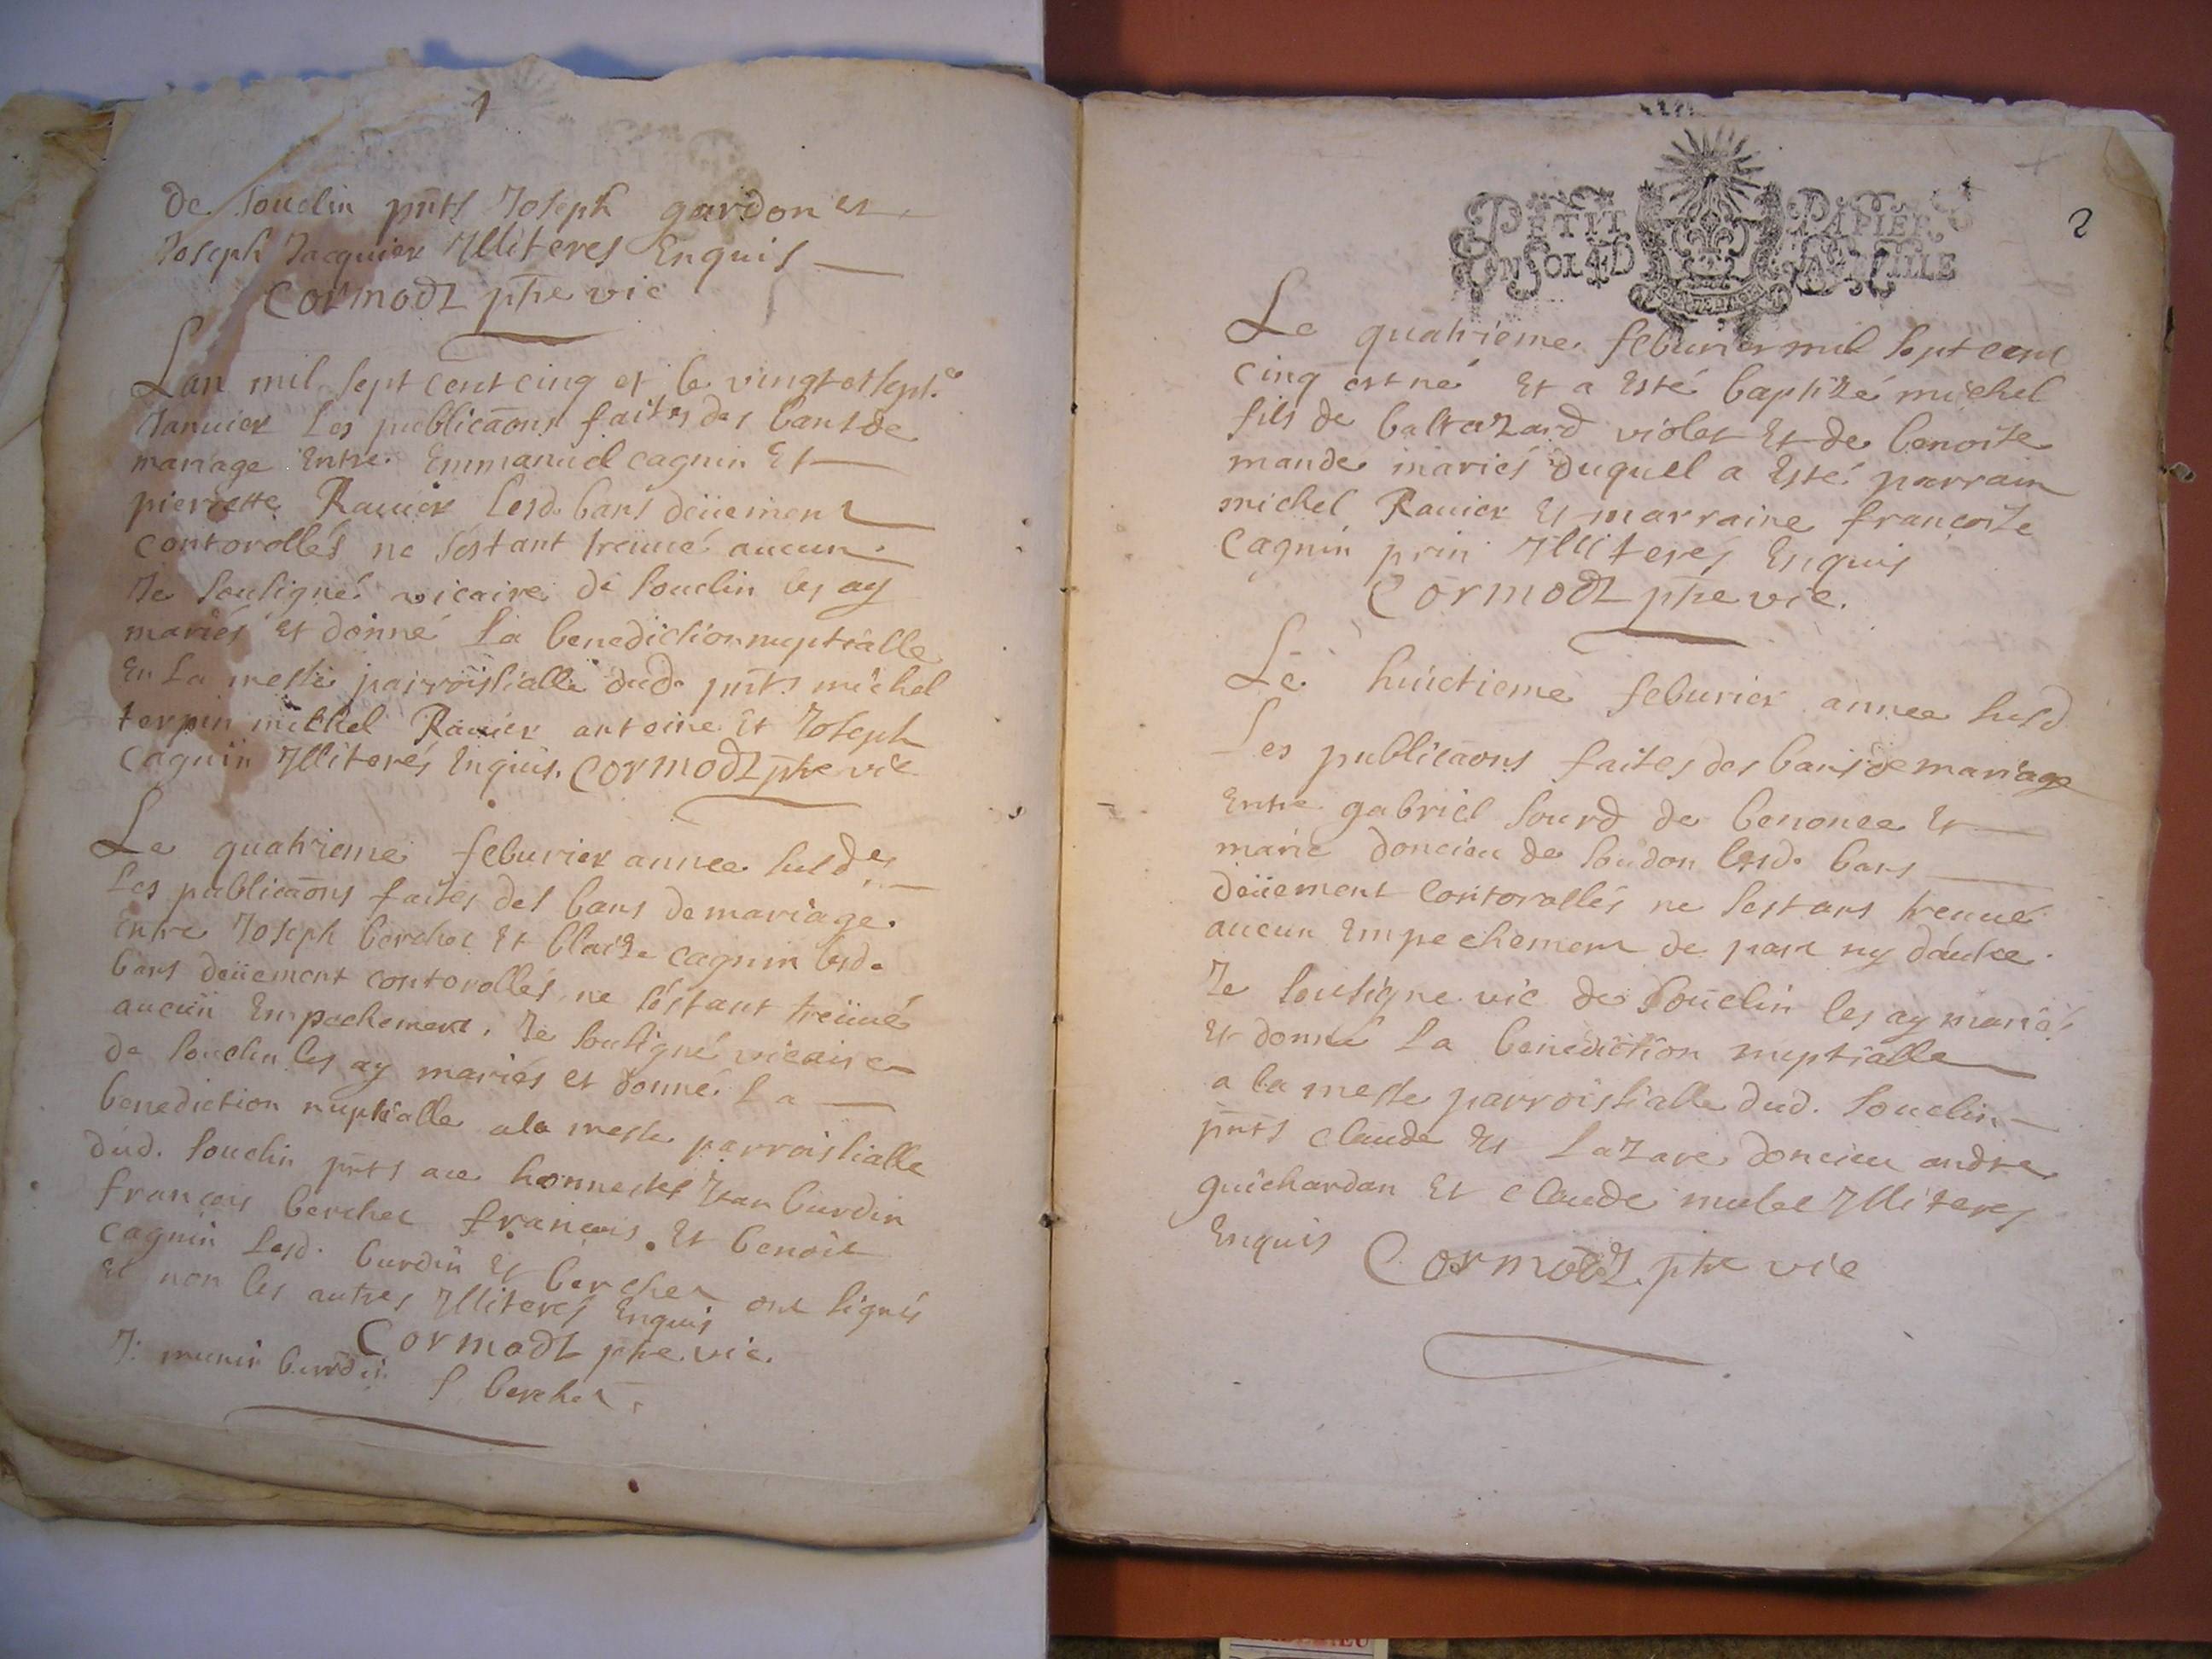 1
de Souclin pnts Joseph gardon et
Joseph Jacquier Illiteres Enquis
Cormodz pbre vic
Lan mil sept cent cinq et le vingt et sept.e
Januier Les publicãons faites des bans de
mariage Entre Emmanuel cagnin Et
pierrette Rauier Lesd. bans deüement
contorollés ne sestant treuué aucun.
Je souligné vicaire de Souclin les ay
mariés et donné La benediction nuptialle
En La messe parroissialle dud. pnts michel
terpin michel Rauier antoine Et Joseph
Cagnin Illiterés Enquis. Cormodz pbre vic
Le quatrieme feburier annee susd.e
Les publicãons faites des bans de mariage.
Entre Joseph berchet Et blaize cagnin lesd.
bans deüement contorollés ne sestant treüué
aucun Empechement. Je souligné vicaire
de Souclin les ay mariés et donné La
benediction nuptialle a la messe parroissialle
dud. Souclin pnts ace honnestes Jean burdin
francois berchet francois Et benoit
cagnin Lesd. burdin Et berchet ont signés
Et non les autres Illiterés Enquis
Cormodz pbre vic.
burdin
berchet
2
PETIT PAPIER
UN SOL 4 D LA FEUILLE
Le quatrieme feburier mil sept cent
cinq est né Et a Esté baptizé michel
fils de baltazard violet Et de benoite
mande mariés duquel a Esté parrain
michel Rauier Et marraine francoise
Cagnin Illiterés Enquis
Cormodz pbre vic.
Le huictieme feburier annee susd
Les publicãons faites des bans de mariage
Entre gabriel sourd de benonce Et
marie doncieu de soudon lesd. bans
deüement contorollés ne sestant treuué
aucun Empechement de part ny dautre.
Je souligne vic de Souclin les ay mariés
Et donné La benediction nuptialle
a la messe parroissialle dud. Souclin
pnts claude Et Lazare doncieu andre
guichardan Et claude mulet Illiteres
Enquis Cormodz pbre vic